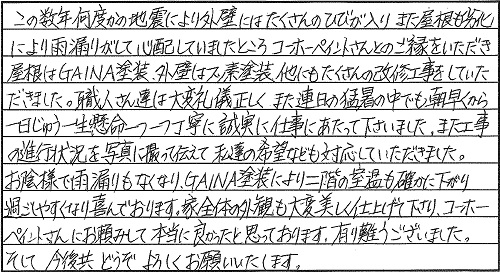 この数年何度かの地震により外壁にはたくさんのひびが入り また屋根も劣化
により雨漏りがして心配していましたところ コーホーペイントさんとのご縁をいただき
屋根はGAINA塗装、外壁はフッ素塗装、他にもたくさんの改修工事をしていた
だきました。職人さん達は大変礼儀正しく また連日の猛暑の中でも朝早くから
一日じゅう一生懸命一つ一つ丁寧に誠実に仕事にあたって下さいました。また工事
の進行状況を写真に撮って伝えて 私達の希望なども対応していただきました。
お陰様で雨漏りもなくなり、GAINA塗装により二階の室温も確かに下がり
過ごしやすくなり喜んでおります。家全体の外観も大変美しく仕上げて下さり、コーホー
ペイントさんにお願みして本当に良かったと思っております。有り難うございました。
そして 今後共 どうぞ よろしくお願いいたします。